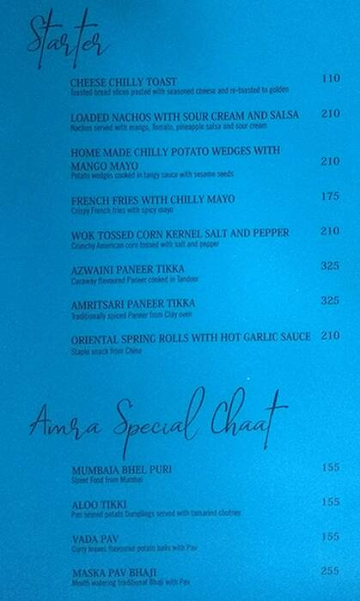 Starter
CHEESE CHILLY TOAST 110
Toasted bread slices pasted with seasoned cheese and re-toasted to golden
LOADED NACHOS WITH SOUR CREAM AND SALSA 210
Nachos served with mango, tomato, pineapple salsa and sour cream
HOME MADE CHILLY POTATO WEDGES WITH
MANGO MAYO 210
Potato wedges cooked in tangy sauce with sesame seeds
FRENCH FRIES WITH CHILLY MAYO 175
Crispy French fries with spicy mayo
WOK TOSSED CORN KERNEL SALT AND PEPPER 210
Crunchy American corn tossed with salt and pepper
AZWAINI PANEER TIKKA 325
Caraway flavoured Paneer cooked in Tandoor
AMRITSARI PANEER TIKKA 325
Traditionally spiced Paneer from Clay oven
ORIENTAL SPRING ROLLS WITH HOT GARLIC SAUCE 210
Staple snack from China
Amra Special Chaat
MUMBAIA BHEL PURI 155
Street Food from Mumbai
ALOO TIKKI 155
Pan seared potato Dumplings served with tamarind chutney
VADA PAV 155
Curry leaves flavoured potato balls with Pav
MASKA PAV BHAJI 255
Mouth watering traditional Bhaji with Pav